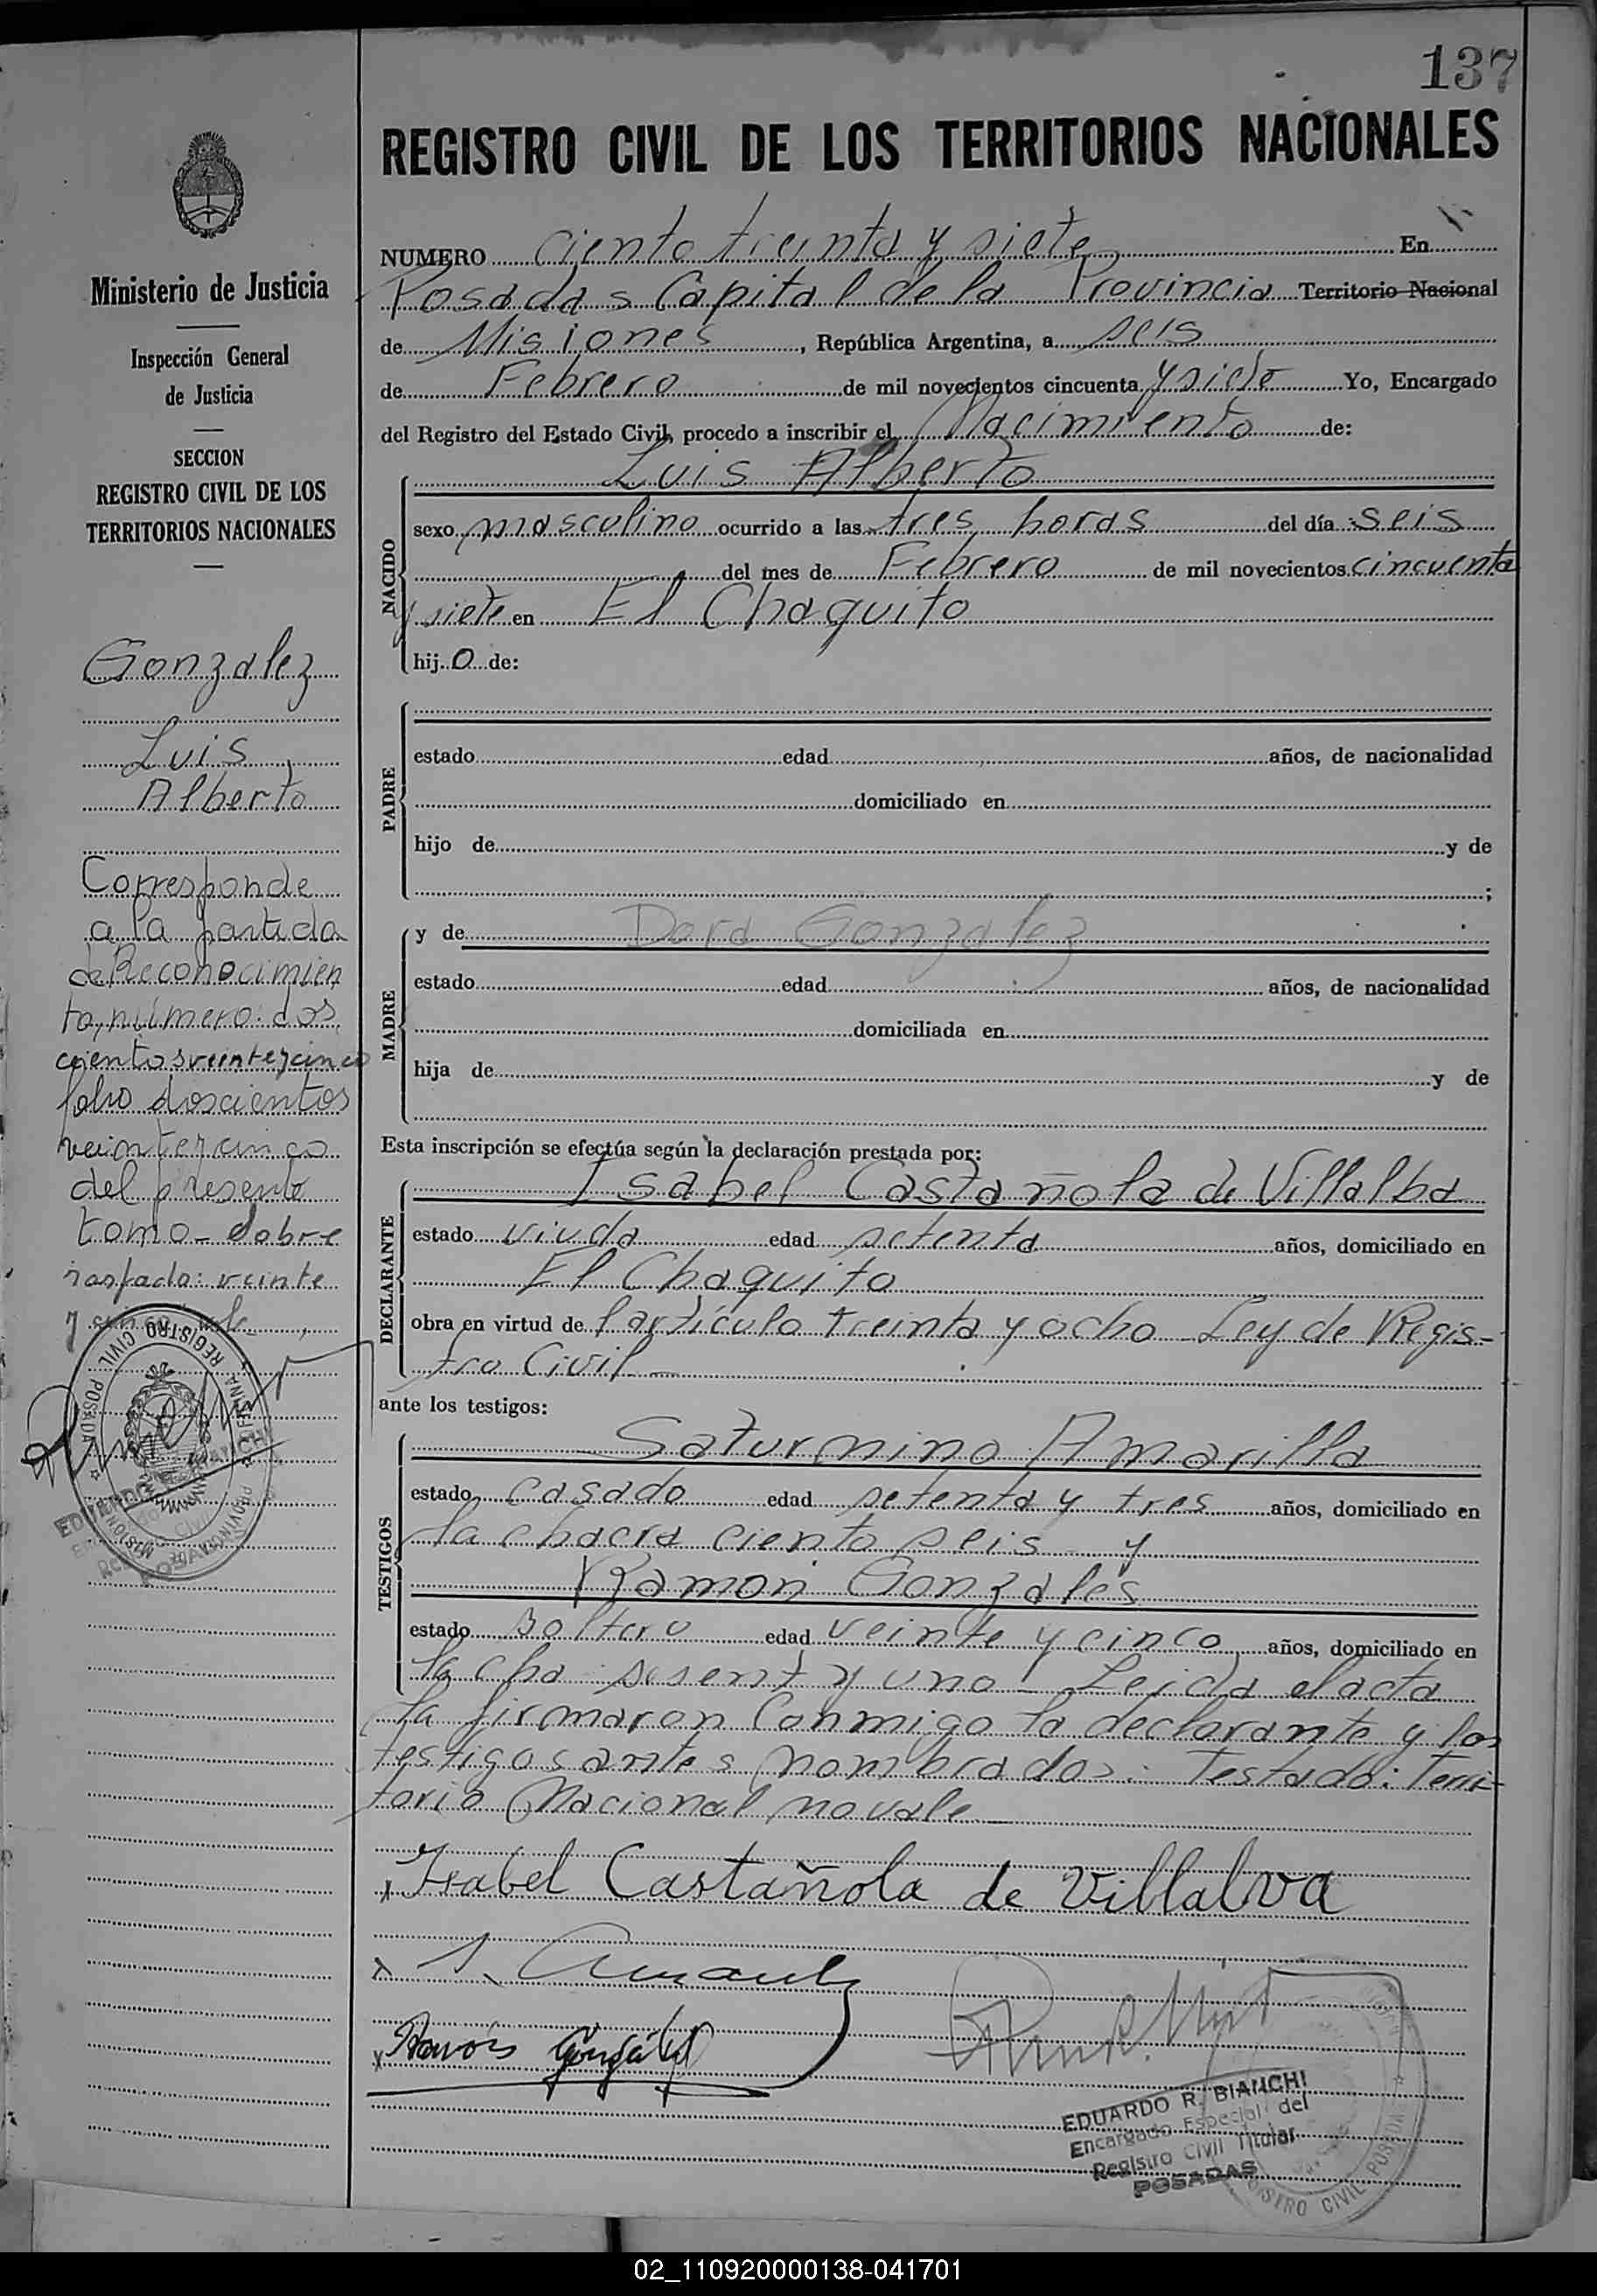 137
REGISTRO CIVIL DE LOS TERRITORIOS NACIONALES
NUMERO ciento treinta y siete En
Posadas Capital de la Provincia Territorio Nacional
de Misiones, República Argentina, a seis
de Febrero de mil novecientos cincuenta y siete Yo, Encargado
del Registro del Estado Civil, procedo a inscribir el Nacimiento de:
NACIDO
Luis Alberto
sexo masculino ocurrido a las tres horas del día seis
del mes de Febrero de mil novecientos cincuenta
y siete en El Chaquito
hijo de:
PADRE
estado edad años, de nacionalidad
domiciliado en
hijo de y de
;
MADRE
y de Dora Gonzalez
estado edad años, de nacionalidad
domiciliada en
hija de y de
Esta inscripción se efectúa según la declaración prestada por:
DECLARANTE
Isabel Castañola de Villalba
estado viuda edad setenta años, domiciliado en
El Chaquito
obra en virtud de l artículo treinta y ocho Ley de Regis-
tro Civil
ante los testigos:
TESTIGOS
Saturnino Amarilla
estado casado edad setenta y tres años, domiciliado en
la chacra ciento seis y
Ramon Gonzales
estado soltero edad veinte y cinco años, domiciliado en
la cha sesent y uno - Leida el acta
la firmaron conmigo la declarante y los
testigos antes nombrados. Testado: Terri-
torio Nacional no vale
x Isabel Castañola de Villalva
x S.
x Ramón González
EDUARDO R. BIANCHI
Encargado Especial del
Registro Civil Titular
POSADAS
REGISTRO CIVIL POSADAS
Ministerio de Justicia
Inspección General
de Justicia
SECCION
REGISTRO CIVIL DE LOS
TERRITORIOS NACIONALES
Gonzalez
Luis
Alberto
Corresponde
a la partida
de Reconocimien
to, número: dos
cientos veinte y cinco
folio doscientos
veinte y cinco
del presente
tomo - sobre
raspado: veinte
y cinco vale
REGISTRO CIVIL POSADAS
02_110920000138-041701